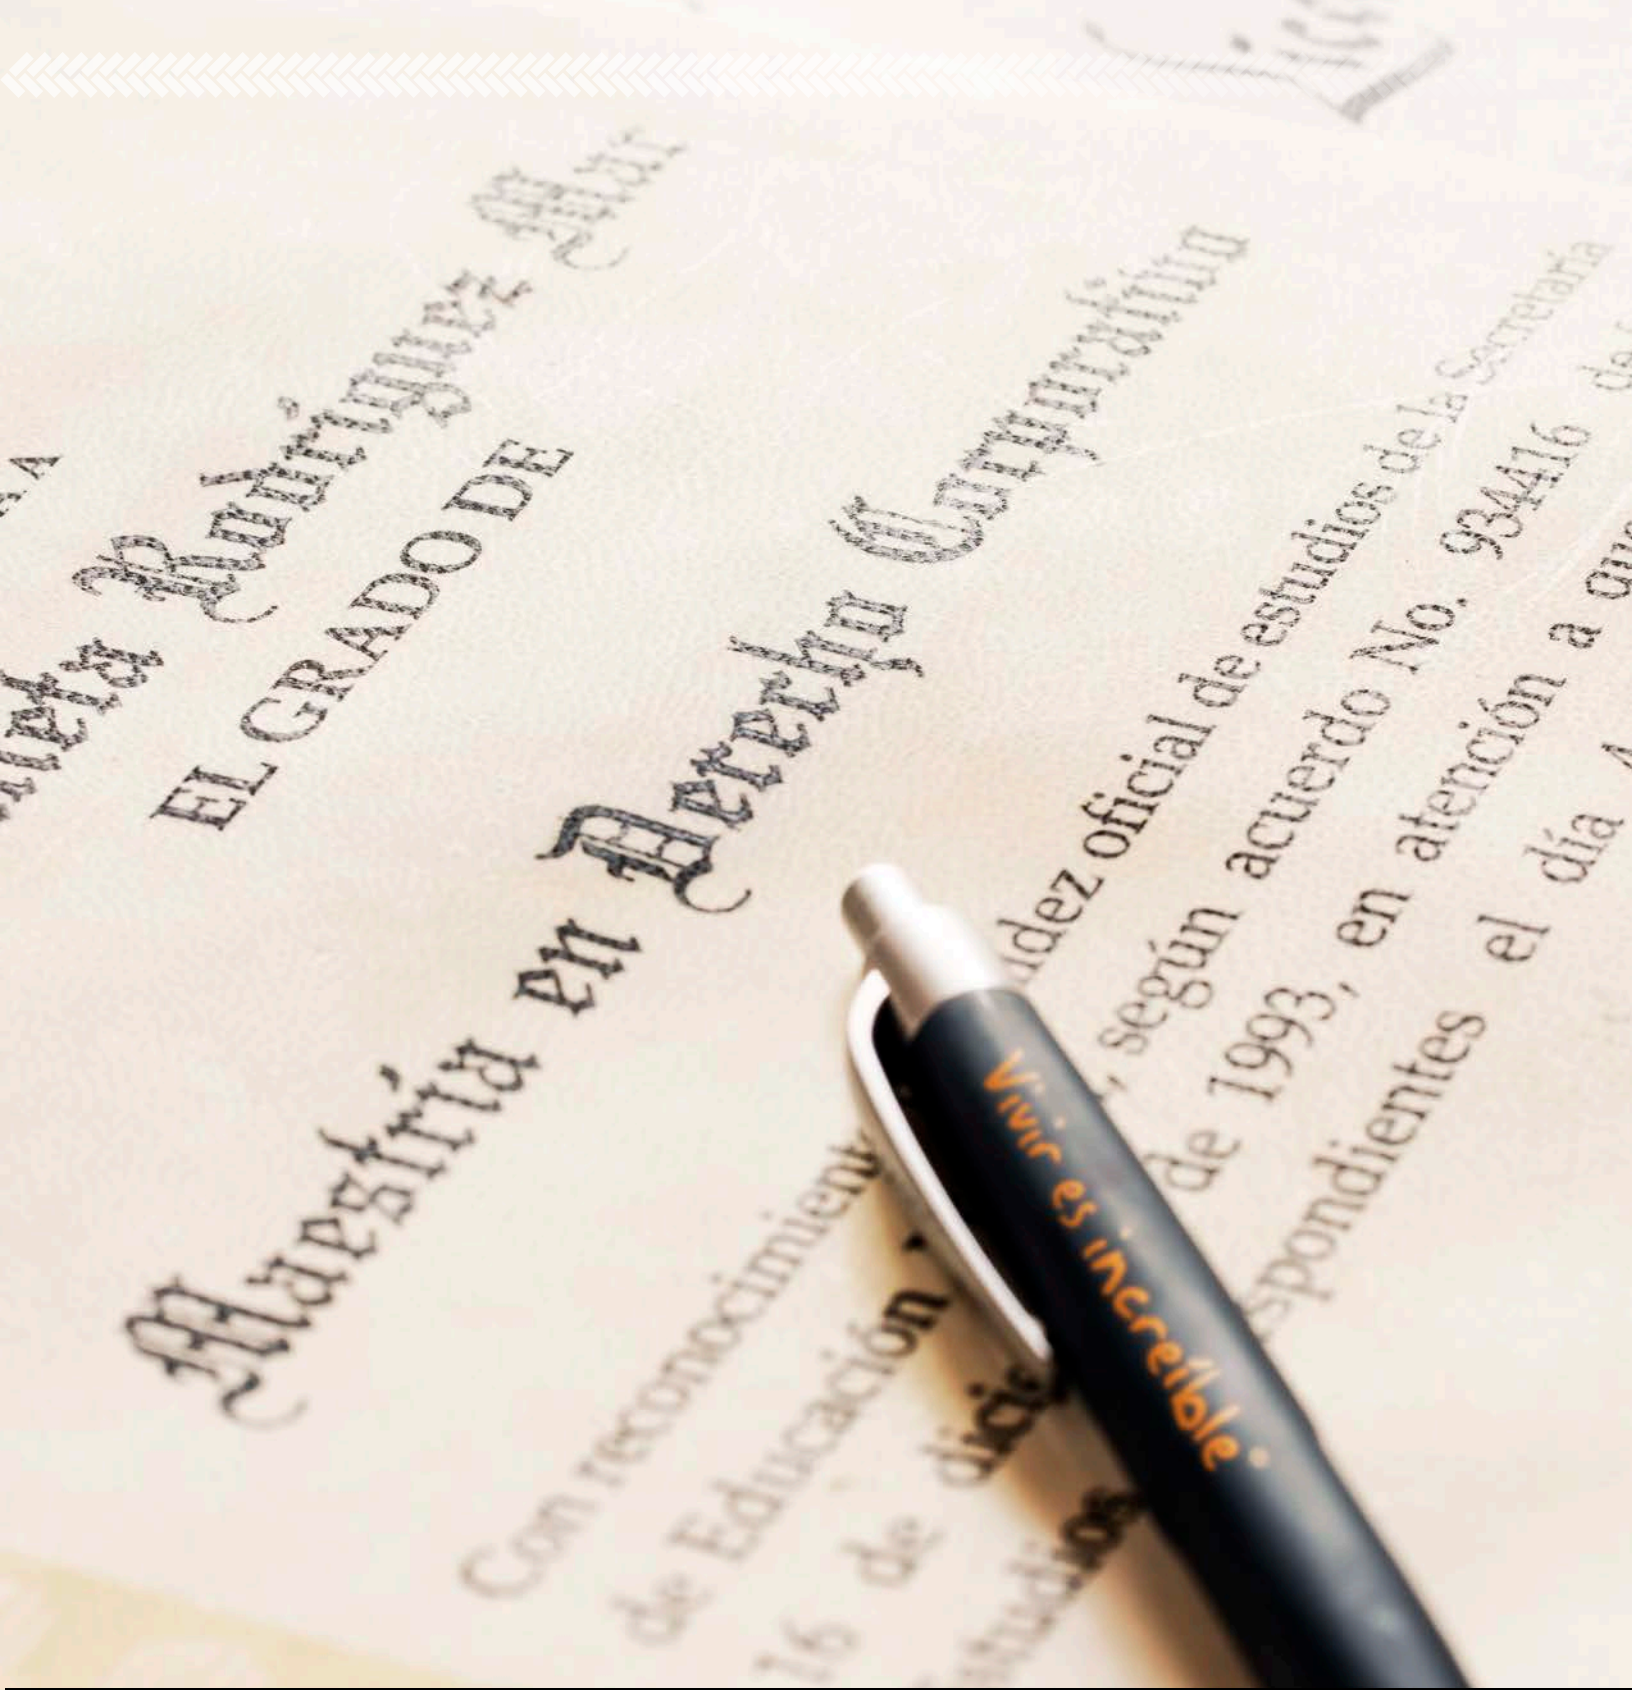 Rodríguez
EL GRADO DE
Maestría en Derecho Corporativo
Con reconocimient idez oficial de estudios de la Secretaría
de Educación , según acuerdo No. 934416 de
16 de dicie de 1993, en atención a que
studios spondientes el día 4
Vivir es increíble